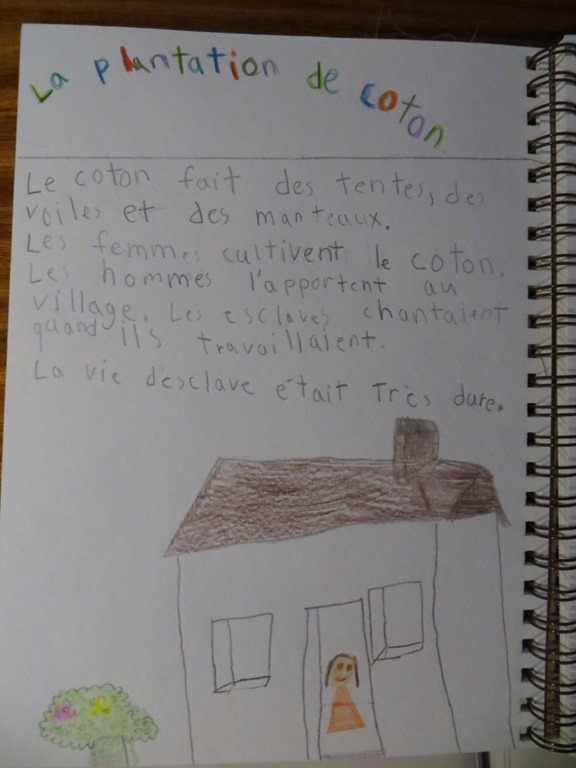 La plantation de coton
Le coton fait des tentes, des
voiles et des manteaux.
Les femmes cultivent le coton.
Les hommes l'apportent au
village. Les esclaves chantaient
quand ils travaillaient.
La vie d'esclave était très dure.